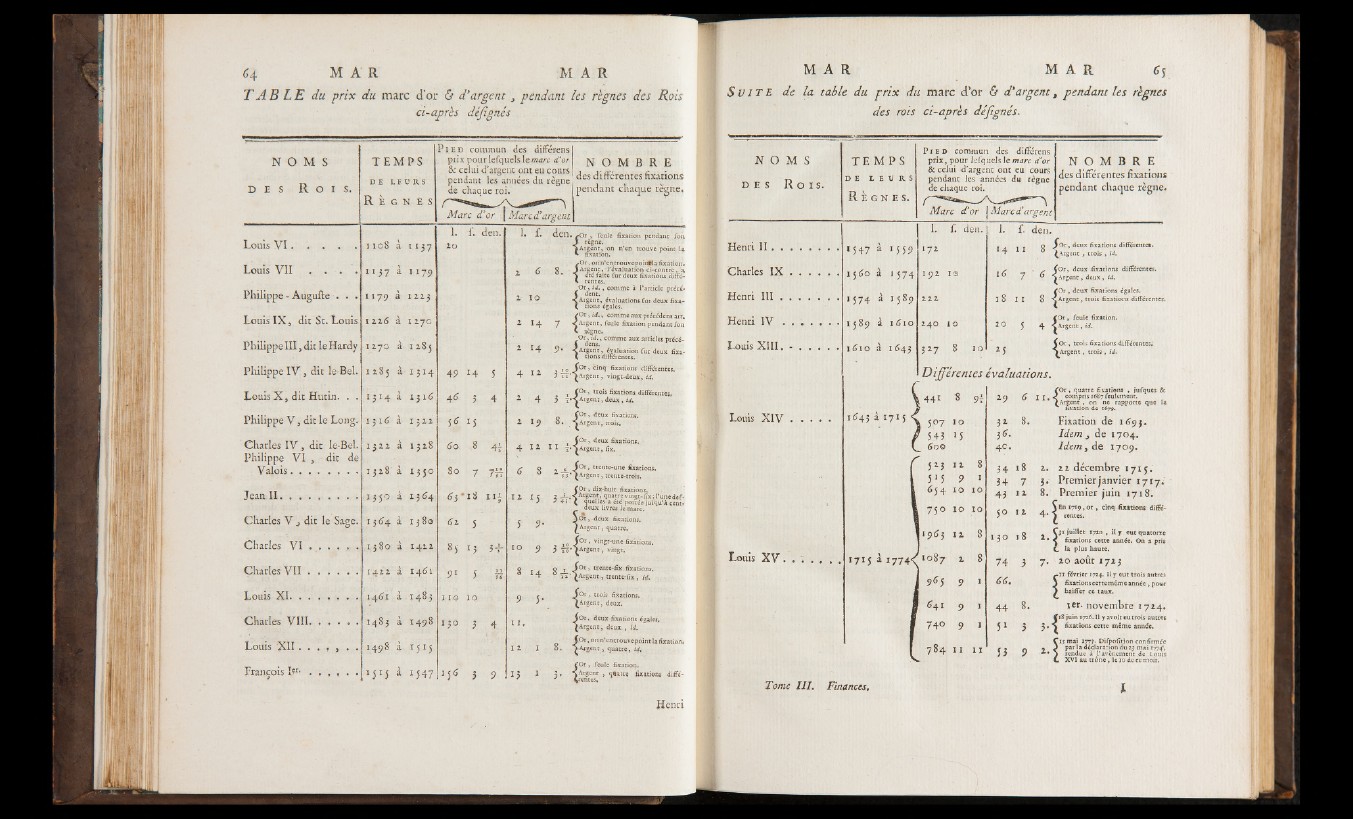 64 M A R M A R
TABLE du prix du marc d'or & d'argent, pendant les règnes des Rois
ci-après désignés
N O M S
D E S R O I S.
T E M P S
D E L E U R S
R È G N E S
PIED commun des différens
prix pour lesquels le marc d'or
& celui d'argent ont eu cours
pendant les années du règne
de chaque roi.
Marc d'or Marc d'argent
N O M B R E
des différentes fixations
pendant chaque règne.
l. ſ. den. l. ſ. den.
Louis VI . . . . . 1108 à 1137 20 Or, seule fixation pendant son
règne.
Argent, on n'en trouve point la
fixation.
Louis VII . . . . 1137 à 1179 2 6 8. Or, on n'en trouve point la fixation.
Argent, l'évaluation ci-contre, a
été faite sur deux fixations différentes.
Philippe-Auguste . . . 1179 à 1223 2 10 Or, id., comme à l'article précédent.
Argent, évaluations sur deux fixations
égales.
Louis IX, dit St. Louis 1226 à 1270 2 14 7 Or, id., comme aux précédens art.
Argent, seule fixation pendant son
règne.
Philippe III, dit le Hardy 1270 à 1285 2 14 9. Or, id., comme aux articles précédens.
Argent, évaluation sur deux fixations
différentes.
Philippe IV, dit le-Bel. 1285 à 1314 49 14 5 4 12 3 Or, cinq fixations différentes.
Argent, vingt-deux, id.
Louis X, dit Hutin. . . 1314 à 1316 46 3 4 2 4 3 Or, trois fixations différentes.
Argent, deux, id.
Philippe V, dit le Long. 1316 à 1322 56 15 2 19 8. Or, deux fixations.
Argent, trois.
Charles IV, dit le-Bel. 1322 à 1328 60 8 4 4 12 11 Or, deux fixations.
Argent, six.
Philippe VI, dit de
Valois . . . . . . . . 1328 à 1350 80 7 7 6 8 2 Or, trente-une fixations.
Argent, trente-trois.
Jean II. . . . . . . . . 1350 à 1364 63 18 11 12 15 3 Or, dix-huit fixations.
Argent, quatre vingt-six; l'une desquelles
a été portée jusqu'à cent
deux livres le marc.
Charles V, dit le Sage. 1364 à 1380 62 5 5 9. Or, deux fixations.
Argent, quatre.
Charles VI . . . . . . 1380 à 1422 85 13 5 10 9 3 Or, vingt-une fixations.
Argent, vingt.
Charles VII . . . . . . 1422 à 1461 91 5 8 14 8 Or, trente-six fixations.
Argent, trente-six, id.
Louis XI. . . . . . . . 1461 à 1483 110 10 9 5. Or, trois fixations.
Argent, deux.
Charles VIII. . . . . . 1483 à 1498 130 3 4 11. Or, deux fixations égales.
Argent, deux, id.
Louis XII . . . . , . . 1498 à 1515 12 1 8. Or, on n'en trouve point la fixation.
Argent, quatre, id.
François Ier. . . . . . . 1515 à 1547 156 3 9 13 2 3. Or, seule fixation.
Argent, quatre fixations différentes.
Henri
M A R M A R 65
SUITE de la table du prix du marc d'or & d'argent, pendant les règnes
des rois ci-après désignés.
N O M S
D E S R O I S.
T E M P S
D E L E U R S
R È G N E S.
PIED commun des différens
prix, pour lesquels le marc d'or
& celui d'argent ont eu cours
pendant les années du règne
de chaque roi.
Marc d'or Marc d'argent
N O M B R E
des différentes fixations
pendant chaque règne.
l. ſ. den. l. ſ. den.
Henri II . . . . . . . . 1547 à 1559 172 14 11 8 Or, deux fixations différentes.
Argent, trois, id.
Charles IX . . . . . . 1560 à 1574 192 10 16 7 6 Or, deux fixations différentes.
Argent, deux, id.
Henri III . . . . . . . 1574 à 1589 222 18 11 8 Or, deux fixations égales.
Argent, trois fixations différentes.
Henri IV . . . . . . . 1589 à 1610 240 10 20 5 4 Or, seule fixation.
Argent, id.
Louis XIII. - . . . . . 1610 à 1643 327 8 10 25 Or, trois fixations différentes.
Argent, trois, id.
Différentes évaluations.
Louis XIV . . . . . 1643 à 1715
441 8 9 29 6 11. Or, quatre fixations, jusques &
compris 1687 seulement.
Argent, on ne rapporte que la
fixation de 1679.
507 10 32 8. Fixation de 1693.
543 15 36. Idem, de 1704.
600 40. Idem, de 1709.
Louis XV . . . . . . . 1715 à 1774
523 12 8 34 18 2. 22 décembre 1715.
515 9 1 34 7 3. Premier janvier 1717.
654 10 10 43 12 8. Premier juin 1718.
750 10 10 50 12 4. fin 1719, or, cinq fixations différentes.
1963 12 8 130 18 2. 31 juillet 1720, il y eut quatorze
fixations cette année. On a pris
la plus haute.
1087 2 8 74 3 7. 20 août 1723
965 9 1 66. 11 février 1724. Il y eut trois autres
fixations cette même année, pour
baisser ce taux.
641 9 1 44 8. 1er. novembre 1724.
740 9 1 51 3 3. 18 juin 1726. Il y avoit eu trois autres
fixations cette même année.
784 11 11 53 9 2. 11 mai 1773. Disposition confirmée
par la déclaration du 23 mai 1774,
rendue à l'avènement de Louis
XVI au trône, le 10 de ce mois.
Tome III. Finances. I